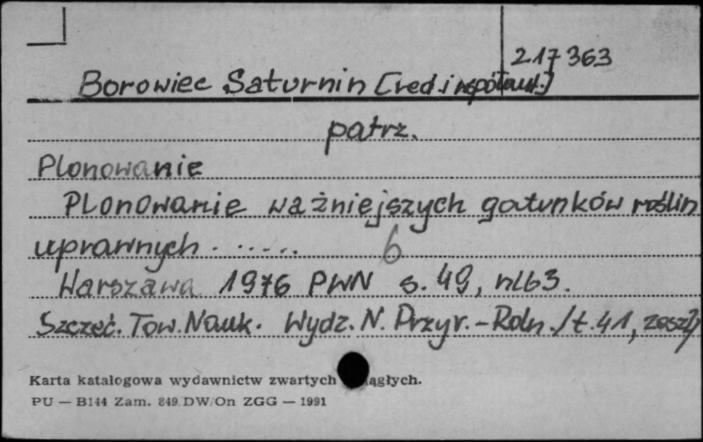 217363
Borowiec Saturnin [red. i współaut.]
patrz.
Plonowanie
Plonowanie ważniejszych gatunków roślin
uprawnych . ......
6
Warszawa 1976 PWN s. 49, nlb3.
Szczeć. Tow. Nauk. Wydz. N. Przyr.-Roln. /t. 41,
Karta katalogowa wydawnictw zwartych
PU — B144 Zam. 849 DW/On ZGG — 1991